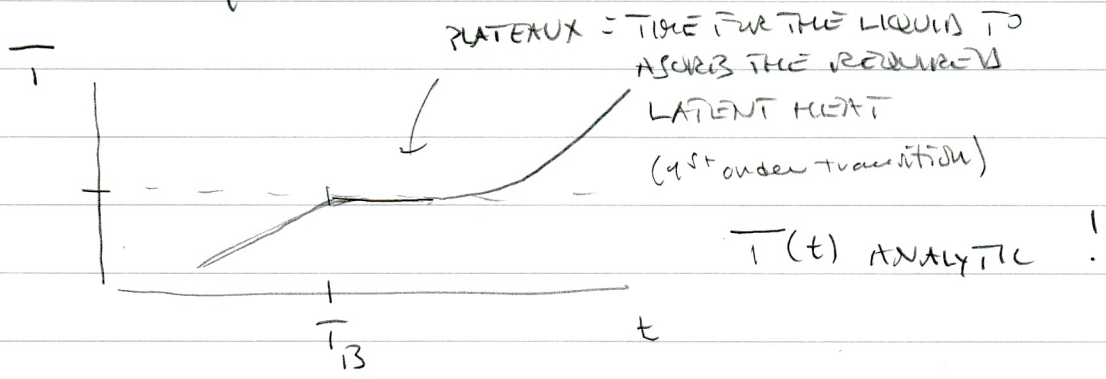 PLATEAUX = TIME FOR THE LIQUID TO
ASORB THE REQUIRED
LATENT HEAT
(1st order transition)
T
T(t) ANALYTIC !
T_B
t